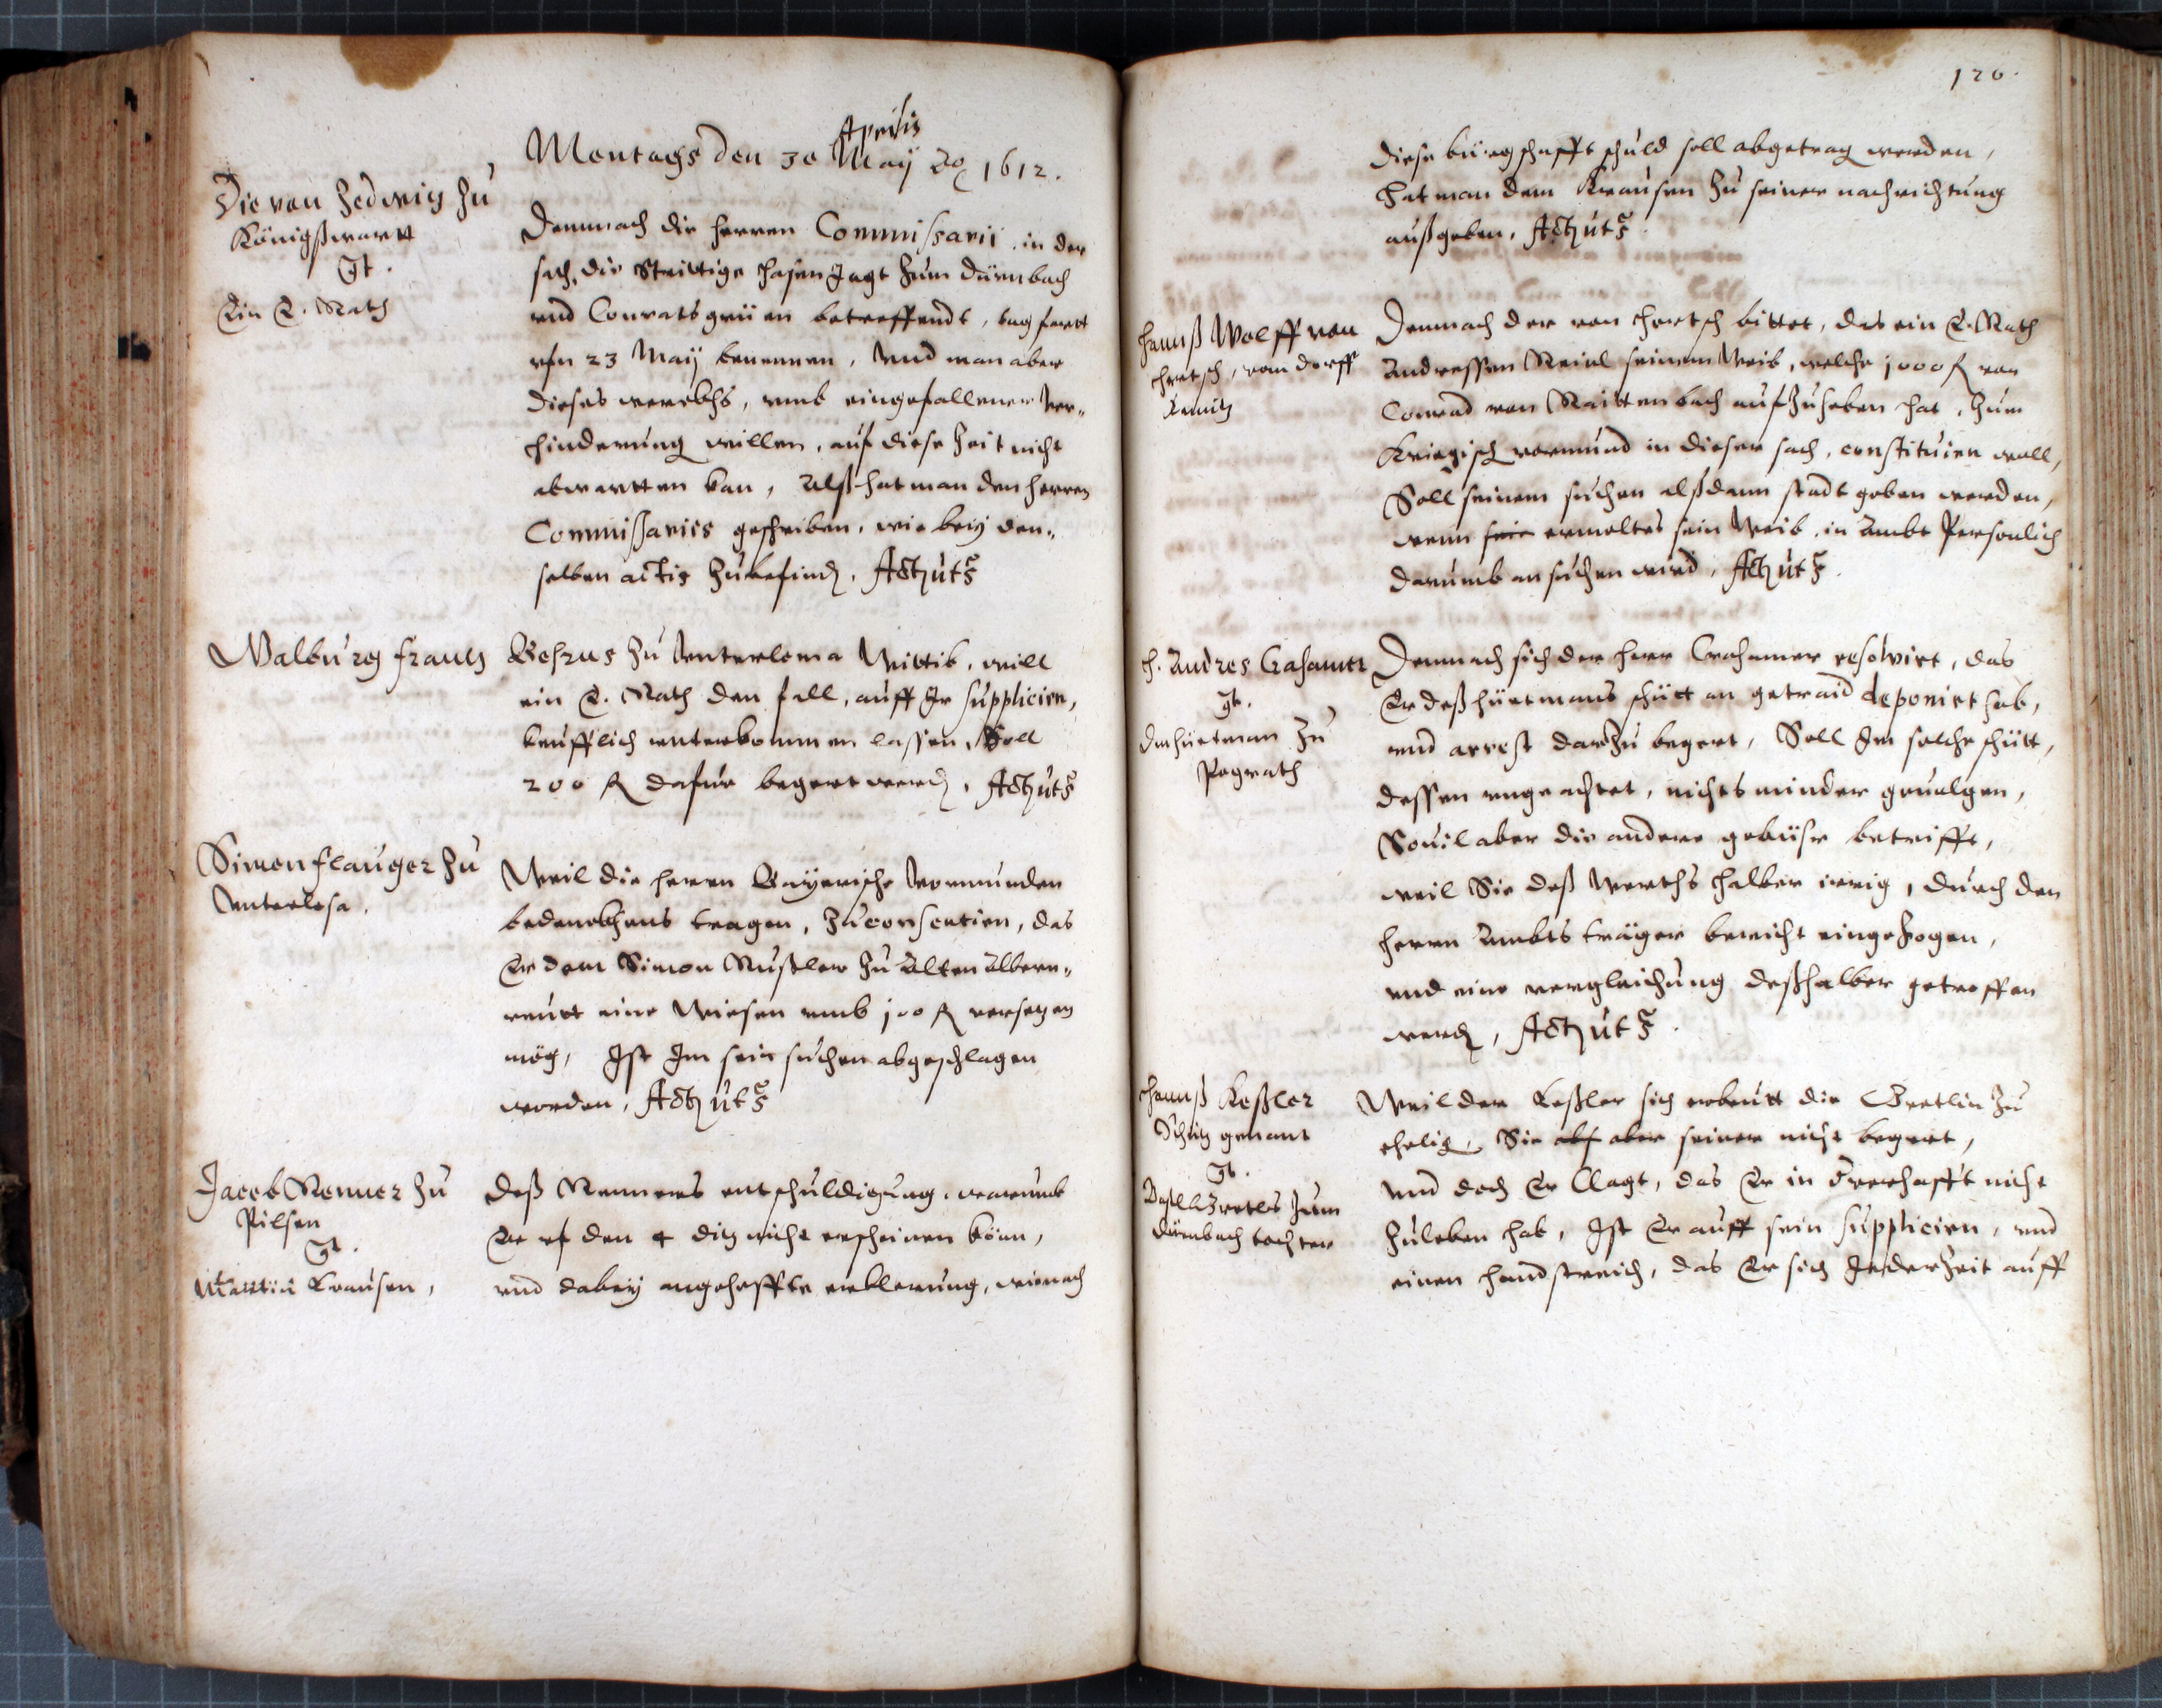 Aprilis
Montags den 30 Maÿ Ao 1612.
Die von Zedwitz zu
Königßwartt
gt.
Ein E. Rath
Demnach die herren Commissarii in der
sach, die Strittige hasen Jagt zum Dürnbach
vnd Conratsgrün betreffendt, tagfartt
vfn 23 Maÿ benennen, Vnd man aber
dieses wercks, vmb eingefallener ver„
hinderung willen, auf diese Zeit nicht
abwartten kan, Alß hat man den herren
Commissariis geschriben, wie beÿ den„
selben actis zubefinden. Act ut s
Walburg Frantz
Gehrus zu Vnterloma Wittib, will
ein E. Rath den fall, auff Ir supplicirn,
keufflich vnterkommen lassen, Soll
200 fl dafür begert werden, Act ut s
Simon Flauger zu
Vnterlosa.
Weil die herrn Baÿerische Vormunden
bedenckhens tragen, zu consentirn, das
Er dem Simon Mußler zu Alten Albern„
reutt eine Wiesen vmb 100 fl versetzen
mög, Ist Im sein suchen abgeschlagen
worden, Act ut s
Jacob Renner zu
Pilsen
gt.
Martin Krausen,
Deß Renners entschuldigung, warumb
Er vf den 4 ditz nicht erscheinen könn,
vnd dabeÿ angeheffte erklerung, wienach
120.
diese bürgschafft schuld soll abgetrag werden,
hat man dem Krausen zu seiner nachrichtung
außgeben. Act ut s.
Hannß Wolff von
, vom dorff
Demnach der von bittet, das ein E. Rath
Andressen Reinl seinem Weib, welche 1000 fl von
Conrad von Raittenbach aufzuheben hat, zum
Kriegisch vormund in dieser sach, constituirn woll,
Soll seinem suchen alßdann stadt geben werden,
wenn sein ermeltes sein Weib in Ambt Persönlich
darumb ansuchen wird. Act ut s.
H. Andres Crahamer
gt.
Den hüetman zu
Pograth
Demnach sich der herr Crahamer resolvirt, das
Er deß hüetmans schütt an getraid deponirt hab,
vnd arrest darzu begert, Soll Im solche schütt,
dessen vngeachtet, nichts minder gevolgen,
Souil aber die andere gebühr betrifft,
weil Sie deß Werths halber irrig, durch den
herrn Ambts träger bericht eingezogen,
vnd eine vergleichung deßhalber getroffen
werden, Act ut s.
Hannß Keßler
Schütz genant
gt.
zum
Dürnbach tochter
Weil der Keßler sich erbeutt die Gretlin zu
ehelichen, Sie abf aber seiner nicht begert,
vnd doch Er Clagt, das Er in verhafft nicht
zuleben hab, Ist Er auff sein supplicirn, vnd
einen handstreich, das Er sich Jederzeit auff